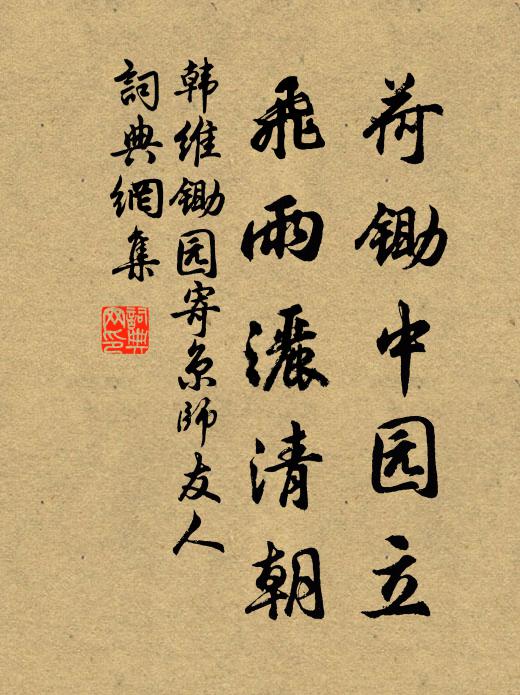 荷锄中园立
飛雨灑清朝
韩维锄园寄京師友人
詞典網集
詞典網印